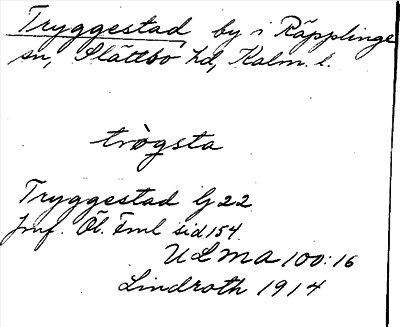 Tryggestad by i Räpplinge
sn, Slättbo hd, Kalm. l.
trògsta
Tryggestad G 22
Jmf. Öl. Fml sid 154
ULMA 100:16
Lindroth 1914